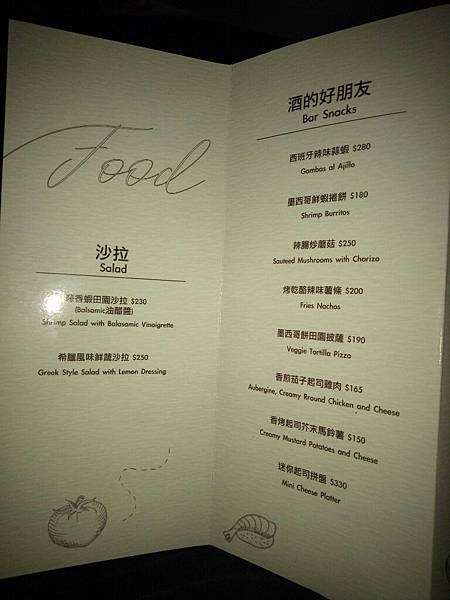 Food
沙拉
Salad
蒜香蝦田園沙拉 $230
(Balsamic油醋醬)
Shrimp Salad with Balasamic Vinaigrette
希臘風味鮮蔬沙拉 $250
Greek Style Salad with Lemon Dressing
酒的好朋友
Bar Snacks
西班牙辣味蒜蝦 $280
Gambas al Ajillo
墨西哥鮮蝦捲餅 $180
Shrimp Burritos
辣腸炒蘑菇 $250
Sauteed Mushrooms with Chorizo
烤乾酪辣味薯條 $200
Fries Nachos
墨西哥餅田園披薩 $190
Veggie Tortilla Pizza
香煎茄子起司雞肉 $165
Aubergine, Creamy Rround Chicken and Cheese
香烤起司芥末馬鈴薯 $150
Creamy Mustard Potatoes and Cheese
迷你起司拼盤 $330
Mini Cheese Platter